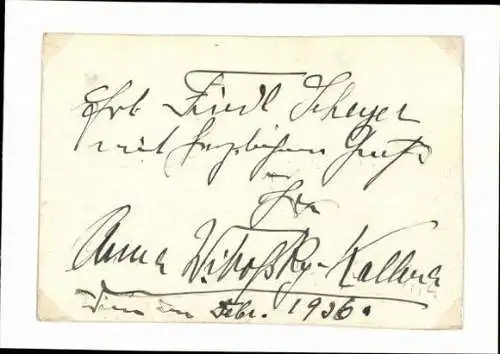 Friedl Scheyer
mit herzlichem Gruß
Ihre
Anna Wikoßky-Kallina
Wien im Febr. 1936.